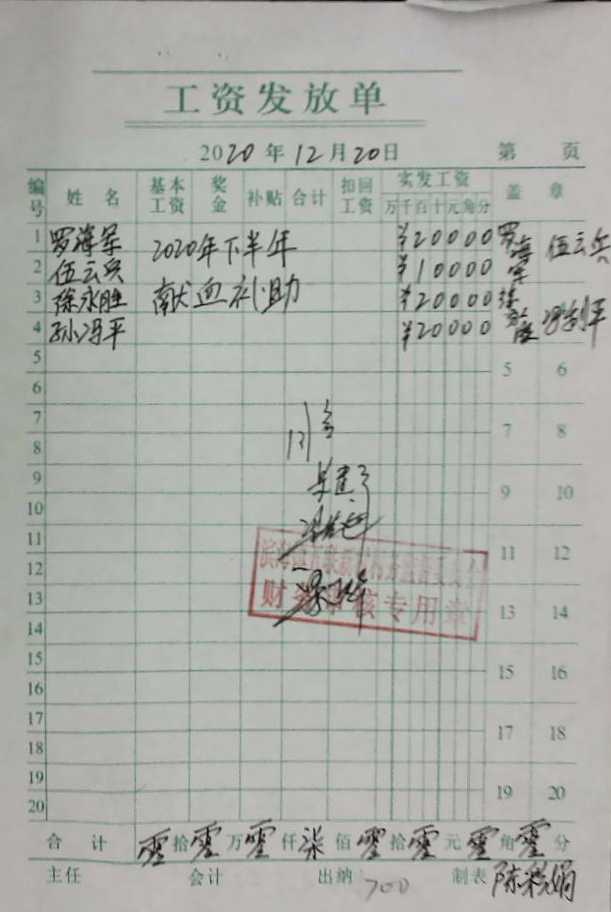 工资发放单
2020年12月20日 第 页
编号 姓 名 基本工资 奖金 补贴 合计 扣回工资 实发工资 盖 章
万千百十元角分
1 罗海军 2020年下半年 ¥20000 罗海军 伍云兵
2 伍云兵 ¥10000
3 徐永胜 献血补助 ¥20000
4 孙冯平 ¥20000
5 5 6
6
7 7 8
8
9 9 10
10
11 11 12
12
13 财务审核专用章 13 14
14
15 15 16
16
17 17 18
18
19 19 20
20
合 计 零拾零万零仟柒佰零拾零元零角零分
主任 会计 出纳 700 制表 陈彩娟